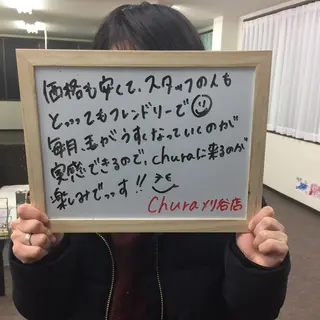 価格も安くて、スタッフの人も
とっってもフレンドリーで
毎月毛がうすくなっていくのが
実感できるので、churaに来るのが
楽しみでっす!!
Chura刈谷店